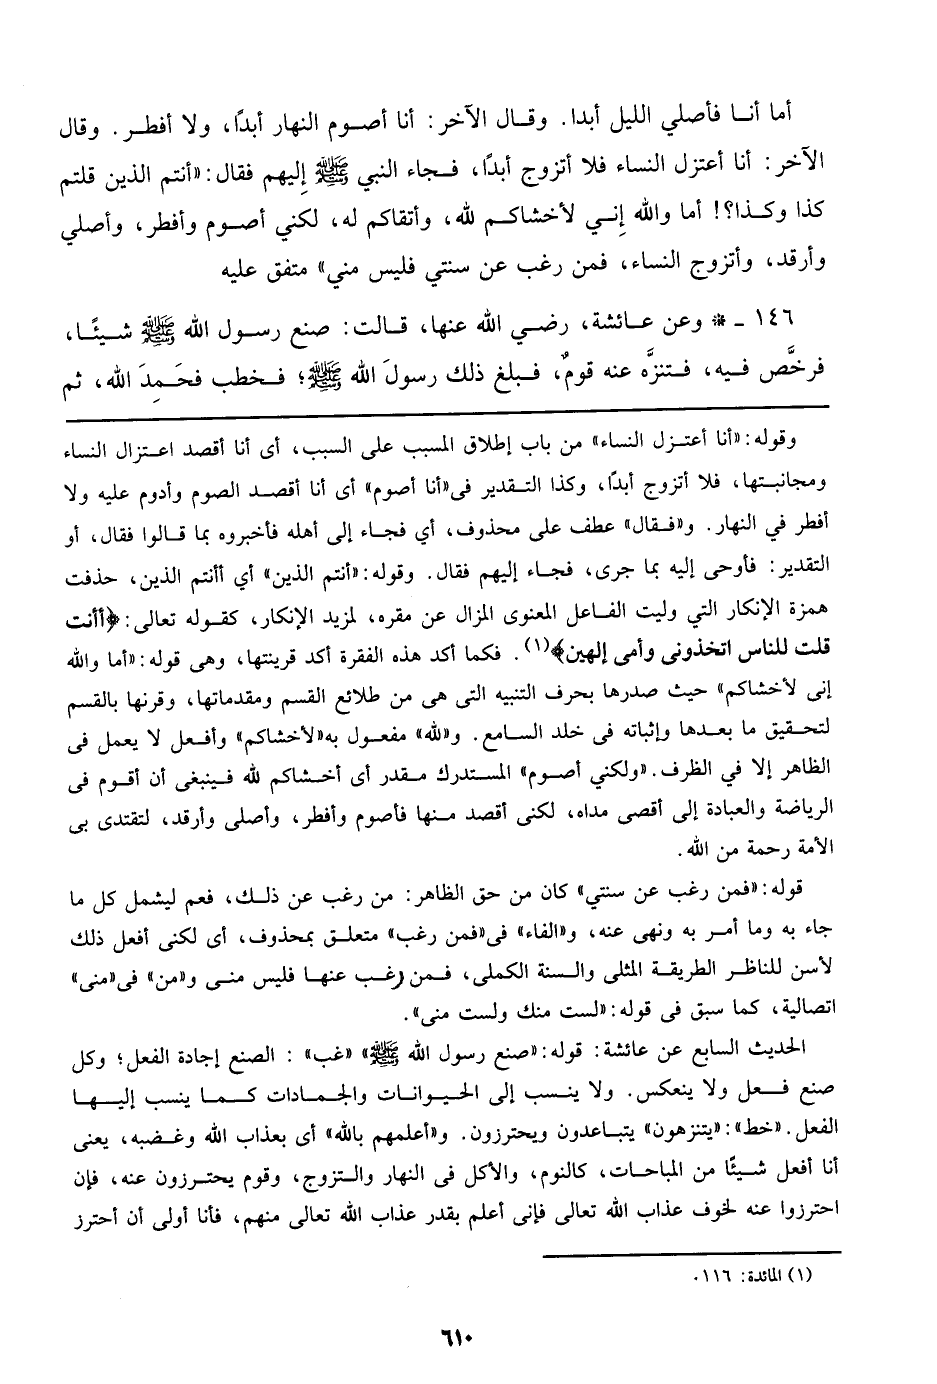 أما أنا فأصلي الليل أبدا. وقال الآخر: أنا أصوم النهار أبدًا، ولا أفطر. وقال
الآخر: أنا أعتزل النساء فلا أتزوج أبدًا، فجاء النبي ﷺ إليهم فقال: «أنتم الذين قلتم
كذا وكذا؟! أما والله إني لأخشاكم لله، وأتقاكم له، لكني أصوم وأفطر، وأصلي
وأرقد، وأتزوج النساء، فمن رغب عن سنتي فليس مني» متفق عليه
١٤٦ ـ * وعن عائشة، رضي الله عنها، قالت: صنع رسول الله ﷺ شيئًا،
فرخَّص فيه، فتنزَّه عنه قومٌ، فبلغ ذلك رسولَ الله ﷺ؛ فخطب فحَمِدَ الله، ثم
وقوله: «أنا أعتزل النساء» من باب إطلاق المسبب على السبب، أى أنا أقصد اعتزال النساء
ومجانبتها، فلا أتزوج أبدًا، وكذا التقدير فى «أنا أصوم» أى أنا أقصد الصوم وأدوم عليه ولا
أفطر في النهار. و«فقال» عطف على محذوف، أي فجاء إلى أهله فأخبروه بما قالوا فقال، أو
التقدير: فأوحى إليه بما جرى، فجاء إليهم فقال. وقوله: «أنتم الذين» أي أأنتم الذين، حذفت
همزة الإنكار التي وليت الفاعل المعنوى المزال عن مقره، لمزيد الإنكار، كقوله تعالى: ﴿أأنت
قلت للناس اتخذونى وأمى إلهين﴾(١). فكما أكد هذه الفقرة أكد قرينتها، وهى قوله: «أما والله
إنى لأخشاكم» حيث صدرها بحرف التنبيه التى هى من طلائع القسم ومقدماتها، وقرنها بالقسم
لتحقيق ما بعدها وإثباته فى خلد السامع. و«لله» مفعول به «لأخشاكم» وأفعل لا يعمل فى
الظاهر إلا في الظرف. «ولكني أصوم» المستدرك مقدر أى أخشاكم لله فينبغى أن أقوم فى
الرياضة والعبادة إلى أقصى مداه، لكنى أقصد منها فأصوم وأفطر، وأصلى وأرقد، لتقتدى بى
الأمة رحمة من الله.
قوله: «فمن رغب عن سنتي» كان من حق الظاهر: من رغب عن ذلك، فعم ليشمل كل ما
جاء به وما أمر به ونهى عنه، و«الفاء» فى «فمن رغب» متعلق بمحذوف، أى لكنى أفعل ذلك
لأسن للناظر الطريقة المثلى والسنة الكملى، فمن رغب عنها فليس منى و«من» فى «منى»
اتصالية، كما سبق فى قوله: «لست منك ولست منى».
الحديث السابع عن عائشة: قوله: «صنع رسول الله ﷺ» «غب» : الصنع إجادة الفعل؛ وكل
صنع فعل ولا ينعكس. ولا ينسب إلى الحيوانات والجمادات كما ينسب إليها
الفعل. «خط»: «يتنزهون» يتباعدون ويحترزون. و«أعلمهم بالله» أى بعذاب الله وغضبه، يعنى
أنا أفعل شيئًا من المباحات، كالنوم، والأكل فى النهار والتزوج، وقوم يحترزون عنه، فإن
احترزوا عنه لخوف عذاب الله تعالى فإنى أعلم بقدر عذاب الله تعالى منهم، فأنا أولى أن أحترز
(١) المائدة: ١١٦.
٦١٠